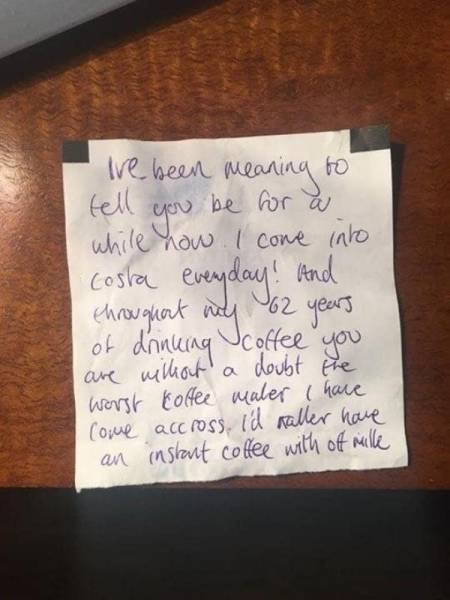 Ive been meaning to
tell you be for a
while now. I come into
costa everyday! And
throughout my 62 years
of drinking coffee you
are without a doubt the
worst coffee maker I have
come accross. I'd rather have
an instant coffee with off milk